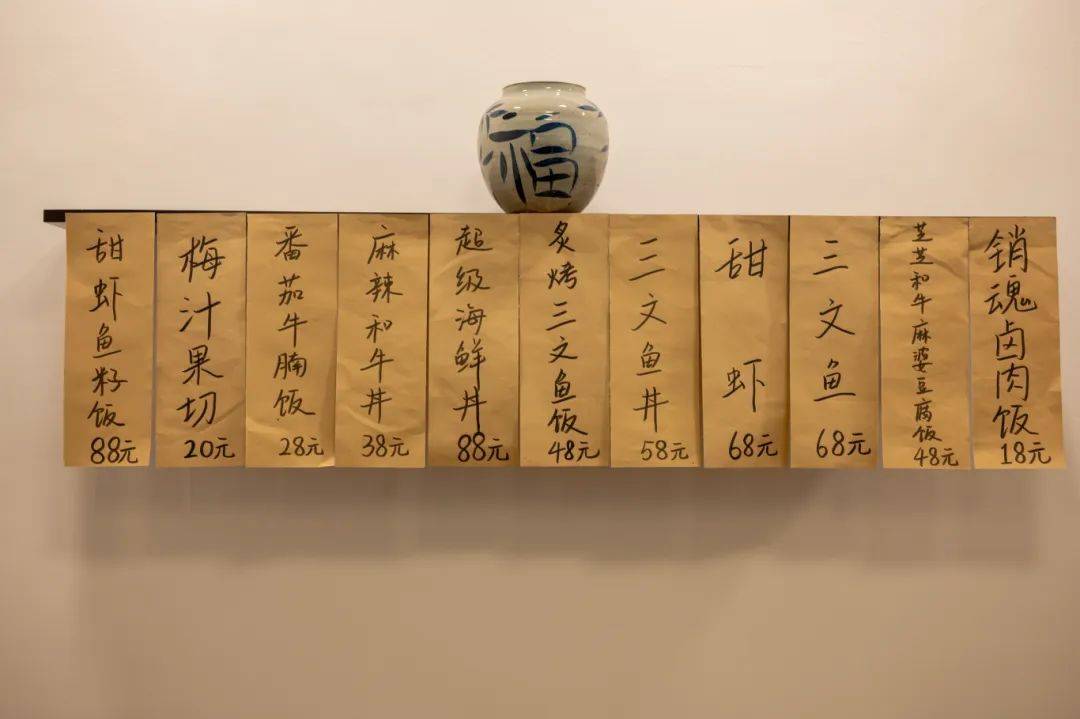 福
甜虾鱼籽饭
88元
梅汁果切
20元
番茄牛腩饭
28元
麻辣和牛丼
38元
超级海鲜丼
88元
炙烤三文鱼饭
48元
三文鱼丼
58元
甜虾
68元
三文鱼
68元
芝芝和牛麻婆豆腐饭
48元
销魂卤肉饭
18元